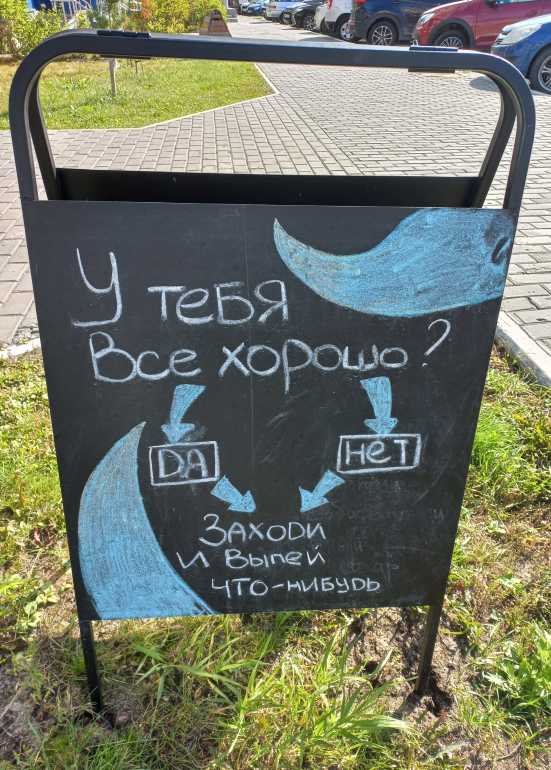 У тебя
Все хорошо?
ДА
Нет
Заходи
и Выпей
что-нибудь